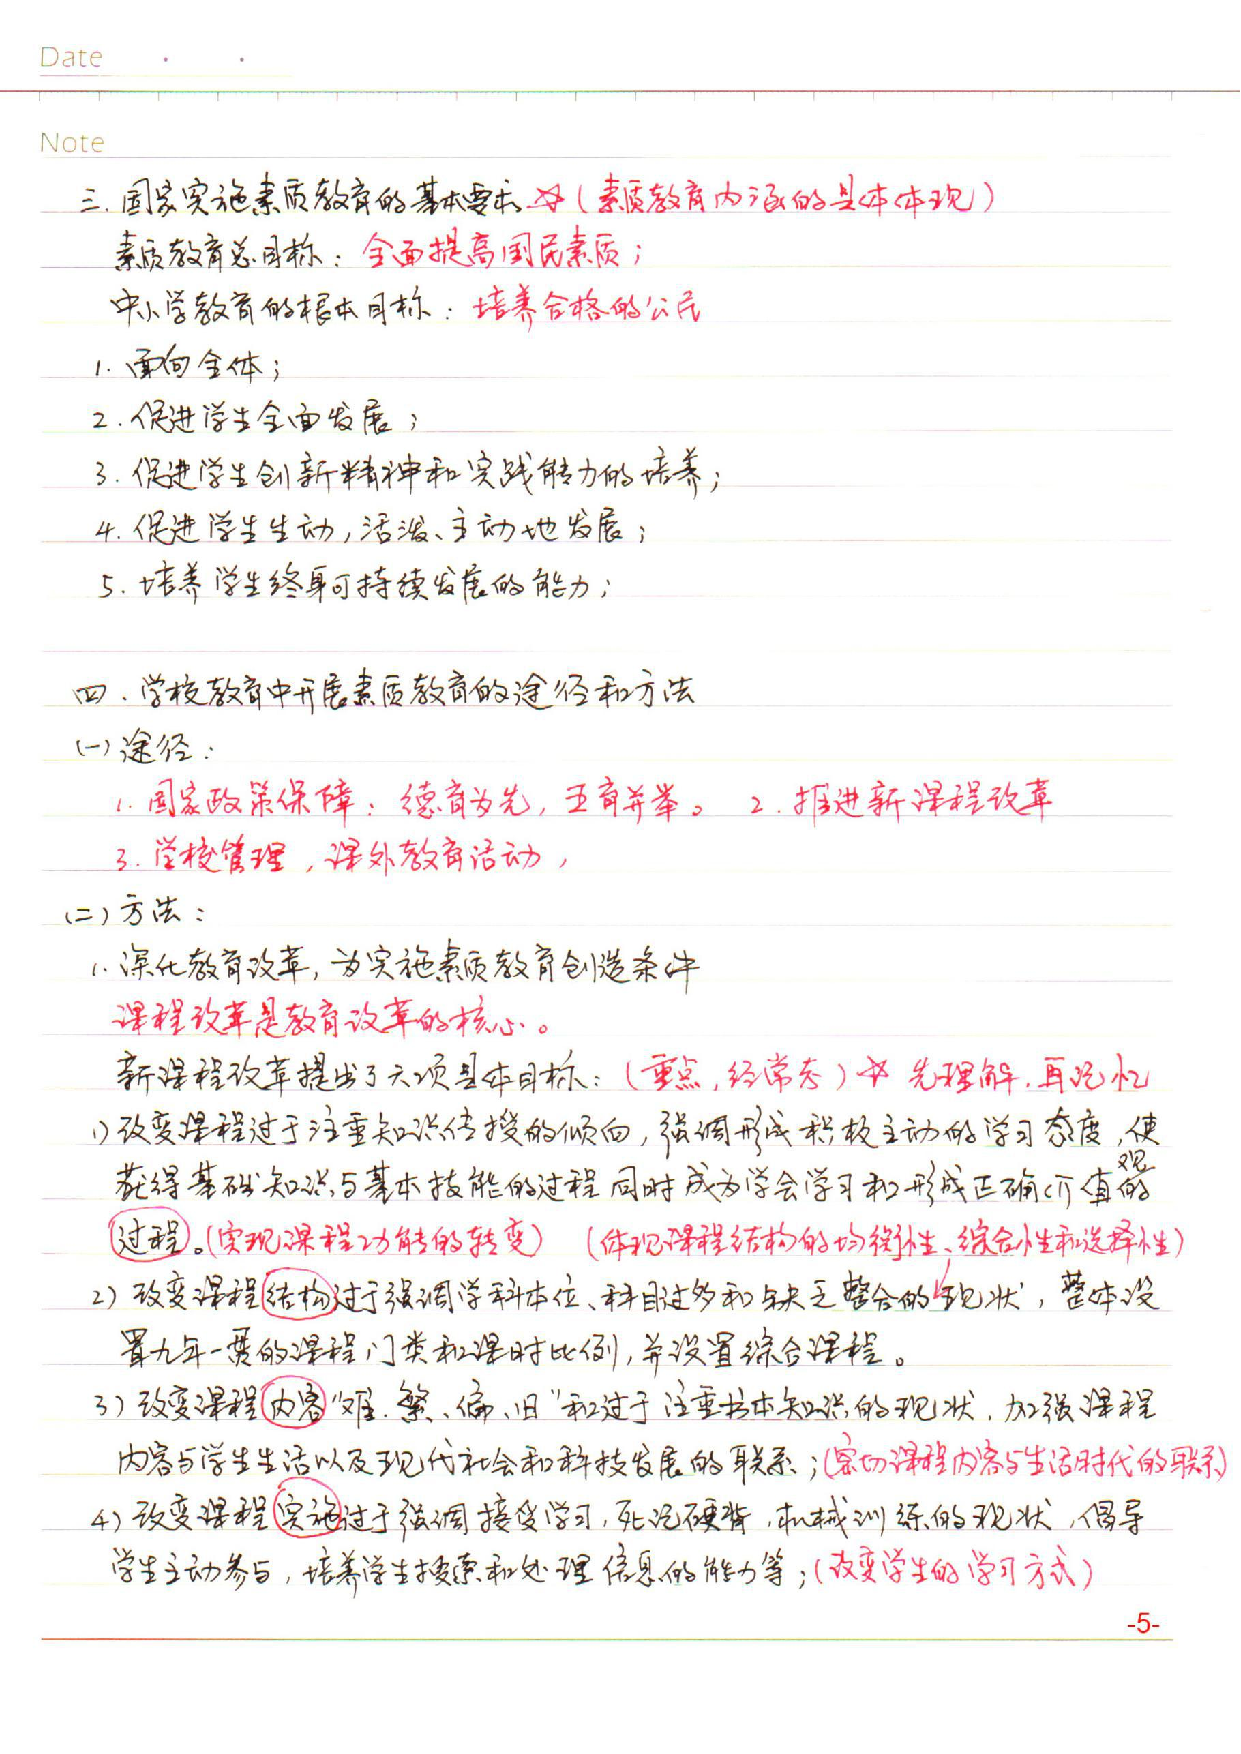 Date
Note
三.国家实施素质教育的基本要求☆(素质教育内涵的具体体现)
素质教育总目标：全面提高国民素质；
中小学教育的根本目标：培养合格的公民
1.面向全体；
2.促进学生全面发展；
3.促进学生创新精神和实践能力的培养；
4.促进学生生动,活泼、主动地发展；
5.培养学生终身可持续发展的能力；
四.学校教育中开展素质教育的途径和方法
(一)途径：
1.国家政策保障：德育为先,五育并举。 2.推进新课程改革
3.学校管理,课外教育活动,
(二)方法：
1.深化教育改革,为实施素质教育创造条件
课程改革是教育改革的核心。
新课程改革提出了六项具体目标：(重点,经常考)☆ 先理解.再记忆
1)改变课程过于注重知识传授的倾向,强调形成积极主动的学习态度,使
获得基础知识与基本技能的过程同时成为学会学习和形成正确价值观的
过程。(实现课程功能的转变) (体现课程结构的均衡性、综合性和选择性)
2)改变课程结构过于强调学科本位、科目过多和缺乏整合的现状,整体设
置九年一贯的课程门类和课时比例,并设置综合课程。
3)改变课程内容"难.繁、偏、旧"和过于注重书本知识的现状.加强课程
内容与学生生活以及现代社会和科技发展的联系；(密切课程内容与生活时代的联系)
4)改变课程实施过于强调接受学习,死记硬背.机械训练的现状,倡导
学生主动参与,培养学生搜索和处理信息的能力等；(改变学生的学习方式)
-5-